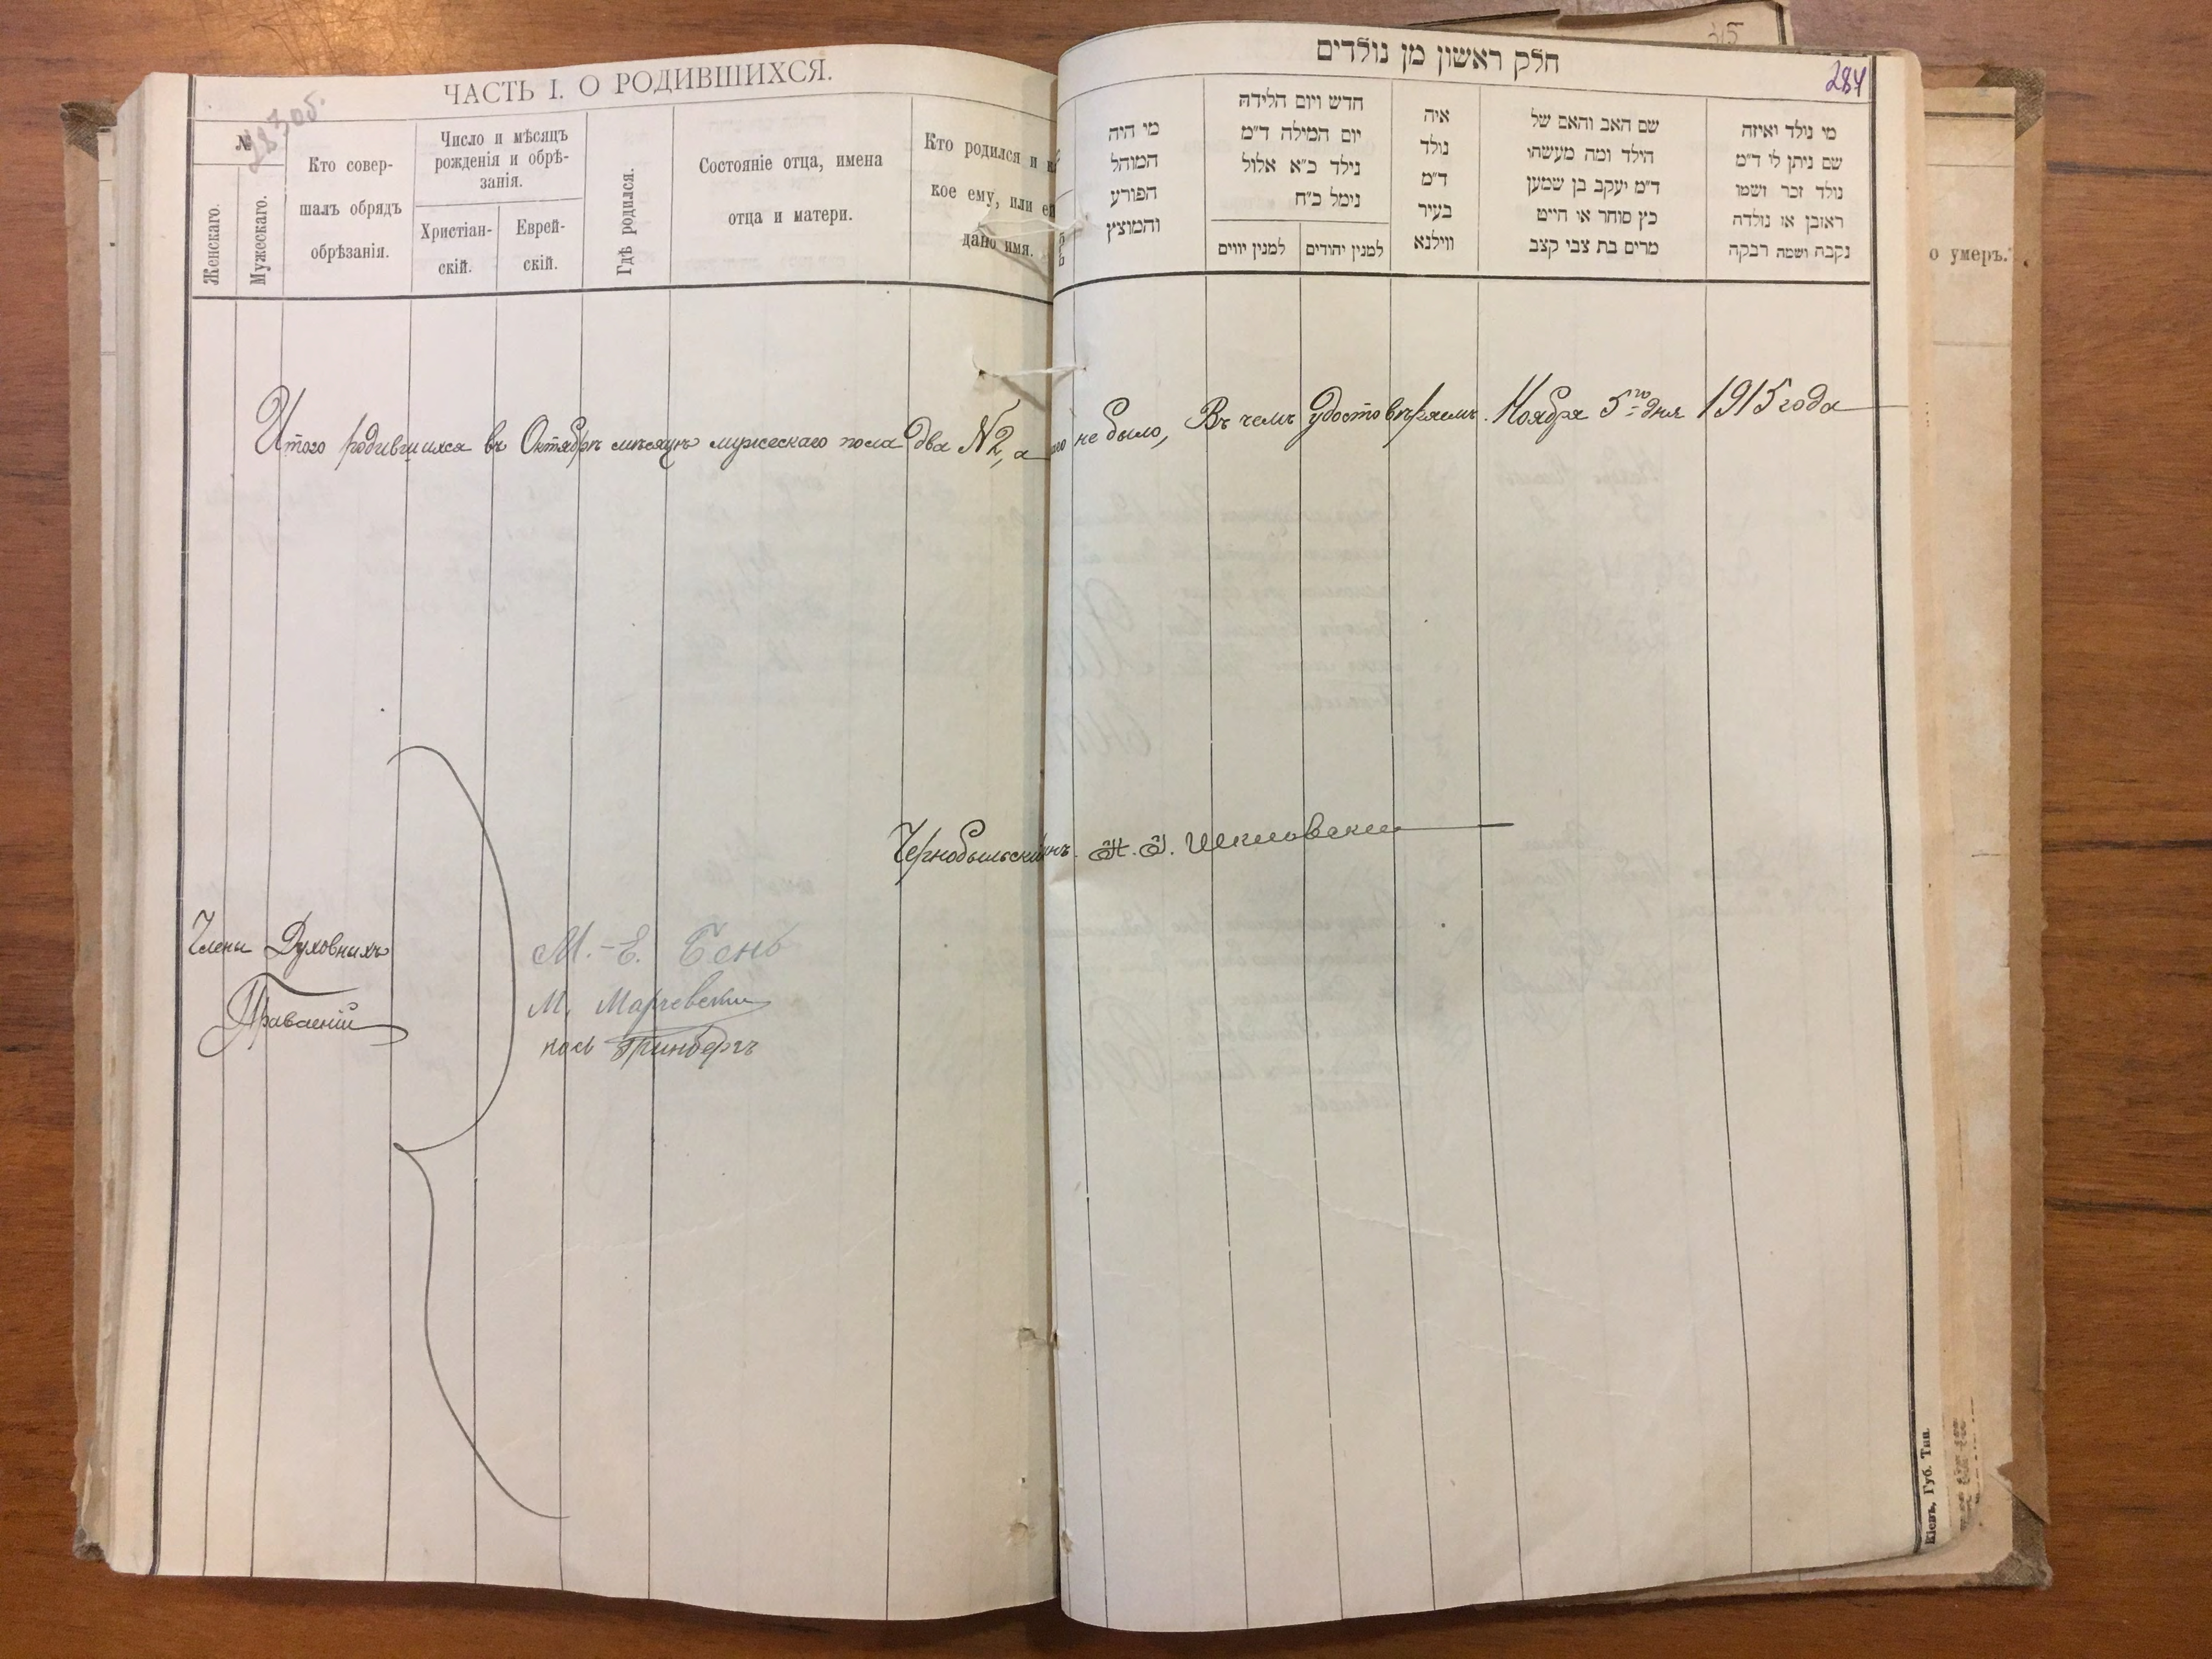 ЧАСТЬ I. О РОДИВШИХСЯ.
283 об.
№
Женскаго.
Мужескаго.
Кто совер-
шалъ обрядъ
обрѣзанія.
Число и мѣсяцъ
рожденія и обрѣ-
занія.
Христіан-
скій.
Еврей-
скій.
Гдѣ родился.
Состояніе отца, имена
отца и матери.
Кто родился и ка
кое ему, или ей
дано имя.
חלק ראשון מן נולדים
284
מי היה
המוהל
הפורע
והמוצץ
חדש ויום הלידה
יום המילה ד״מ
נילד כ״א אלול
נימל כ״ח
למנין יווים
למנין יהודים
איה
נולד
ד״מ
בעיר
ווילנא
שם האב והאם של
הילד ומה מעשהו
ד״מ יעקב בן שמען
כץ סוחר או חייט
מרים בת צבי קצב
מי נולד ואיזה
שם ניתן לו ד״מ
נולד זכר ושמו
ראובן או נולדה
נקבה ושמה רבקה
315
о умеръ.
Итого родившихся въ Октябрѣ мѣсяцѣ мужескаго пола два №2, а не было, Въ чемъ удостовѣряемъ. Ноября 5го дня 1915 года
Чернобыльскій
Члены Духовныхъ
Правленій
М.-Е. Бень
М.
Гринбергъ
Кіевъ, Губ. Тип.